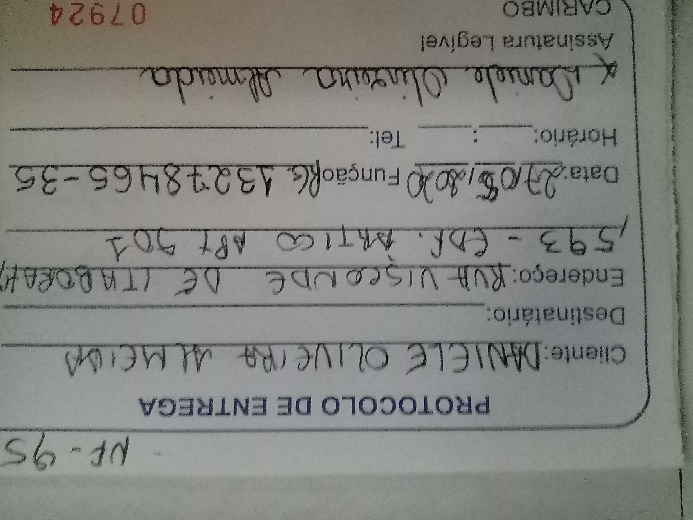 NF - 95
PROTOCOLO DE ENTREGA
Cliente: DANIELE OLIVEIRA ALMEIDA
Destinatário:
Endereço: RUA VISCONDE DE ITABORAHY
, 593 - EDF. ARTICO APT 301
Data: 27/05/2020 Função RG 13278465-35
Horário: : Tel:
x Daniele Oliveira Almeida
Assinatura Legível
CARIMBO 07924